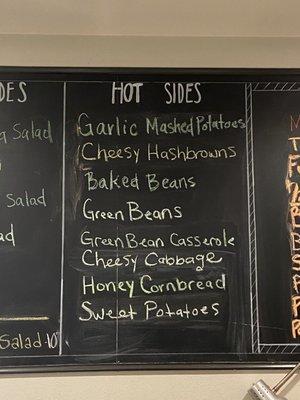 HOT SIDES
Garlic Mashed Potatoes
Cheesy Hashbrowns
Baked Beans
Green Beans
Green Bean Casserole
Cheesy Cabbage
Honey Cornbread
Sweet Potatoes
DES
Salad
Salad
Salad 10